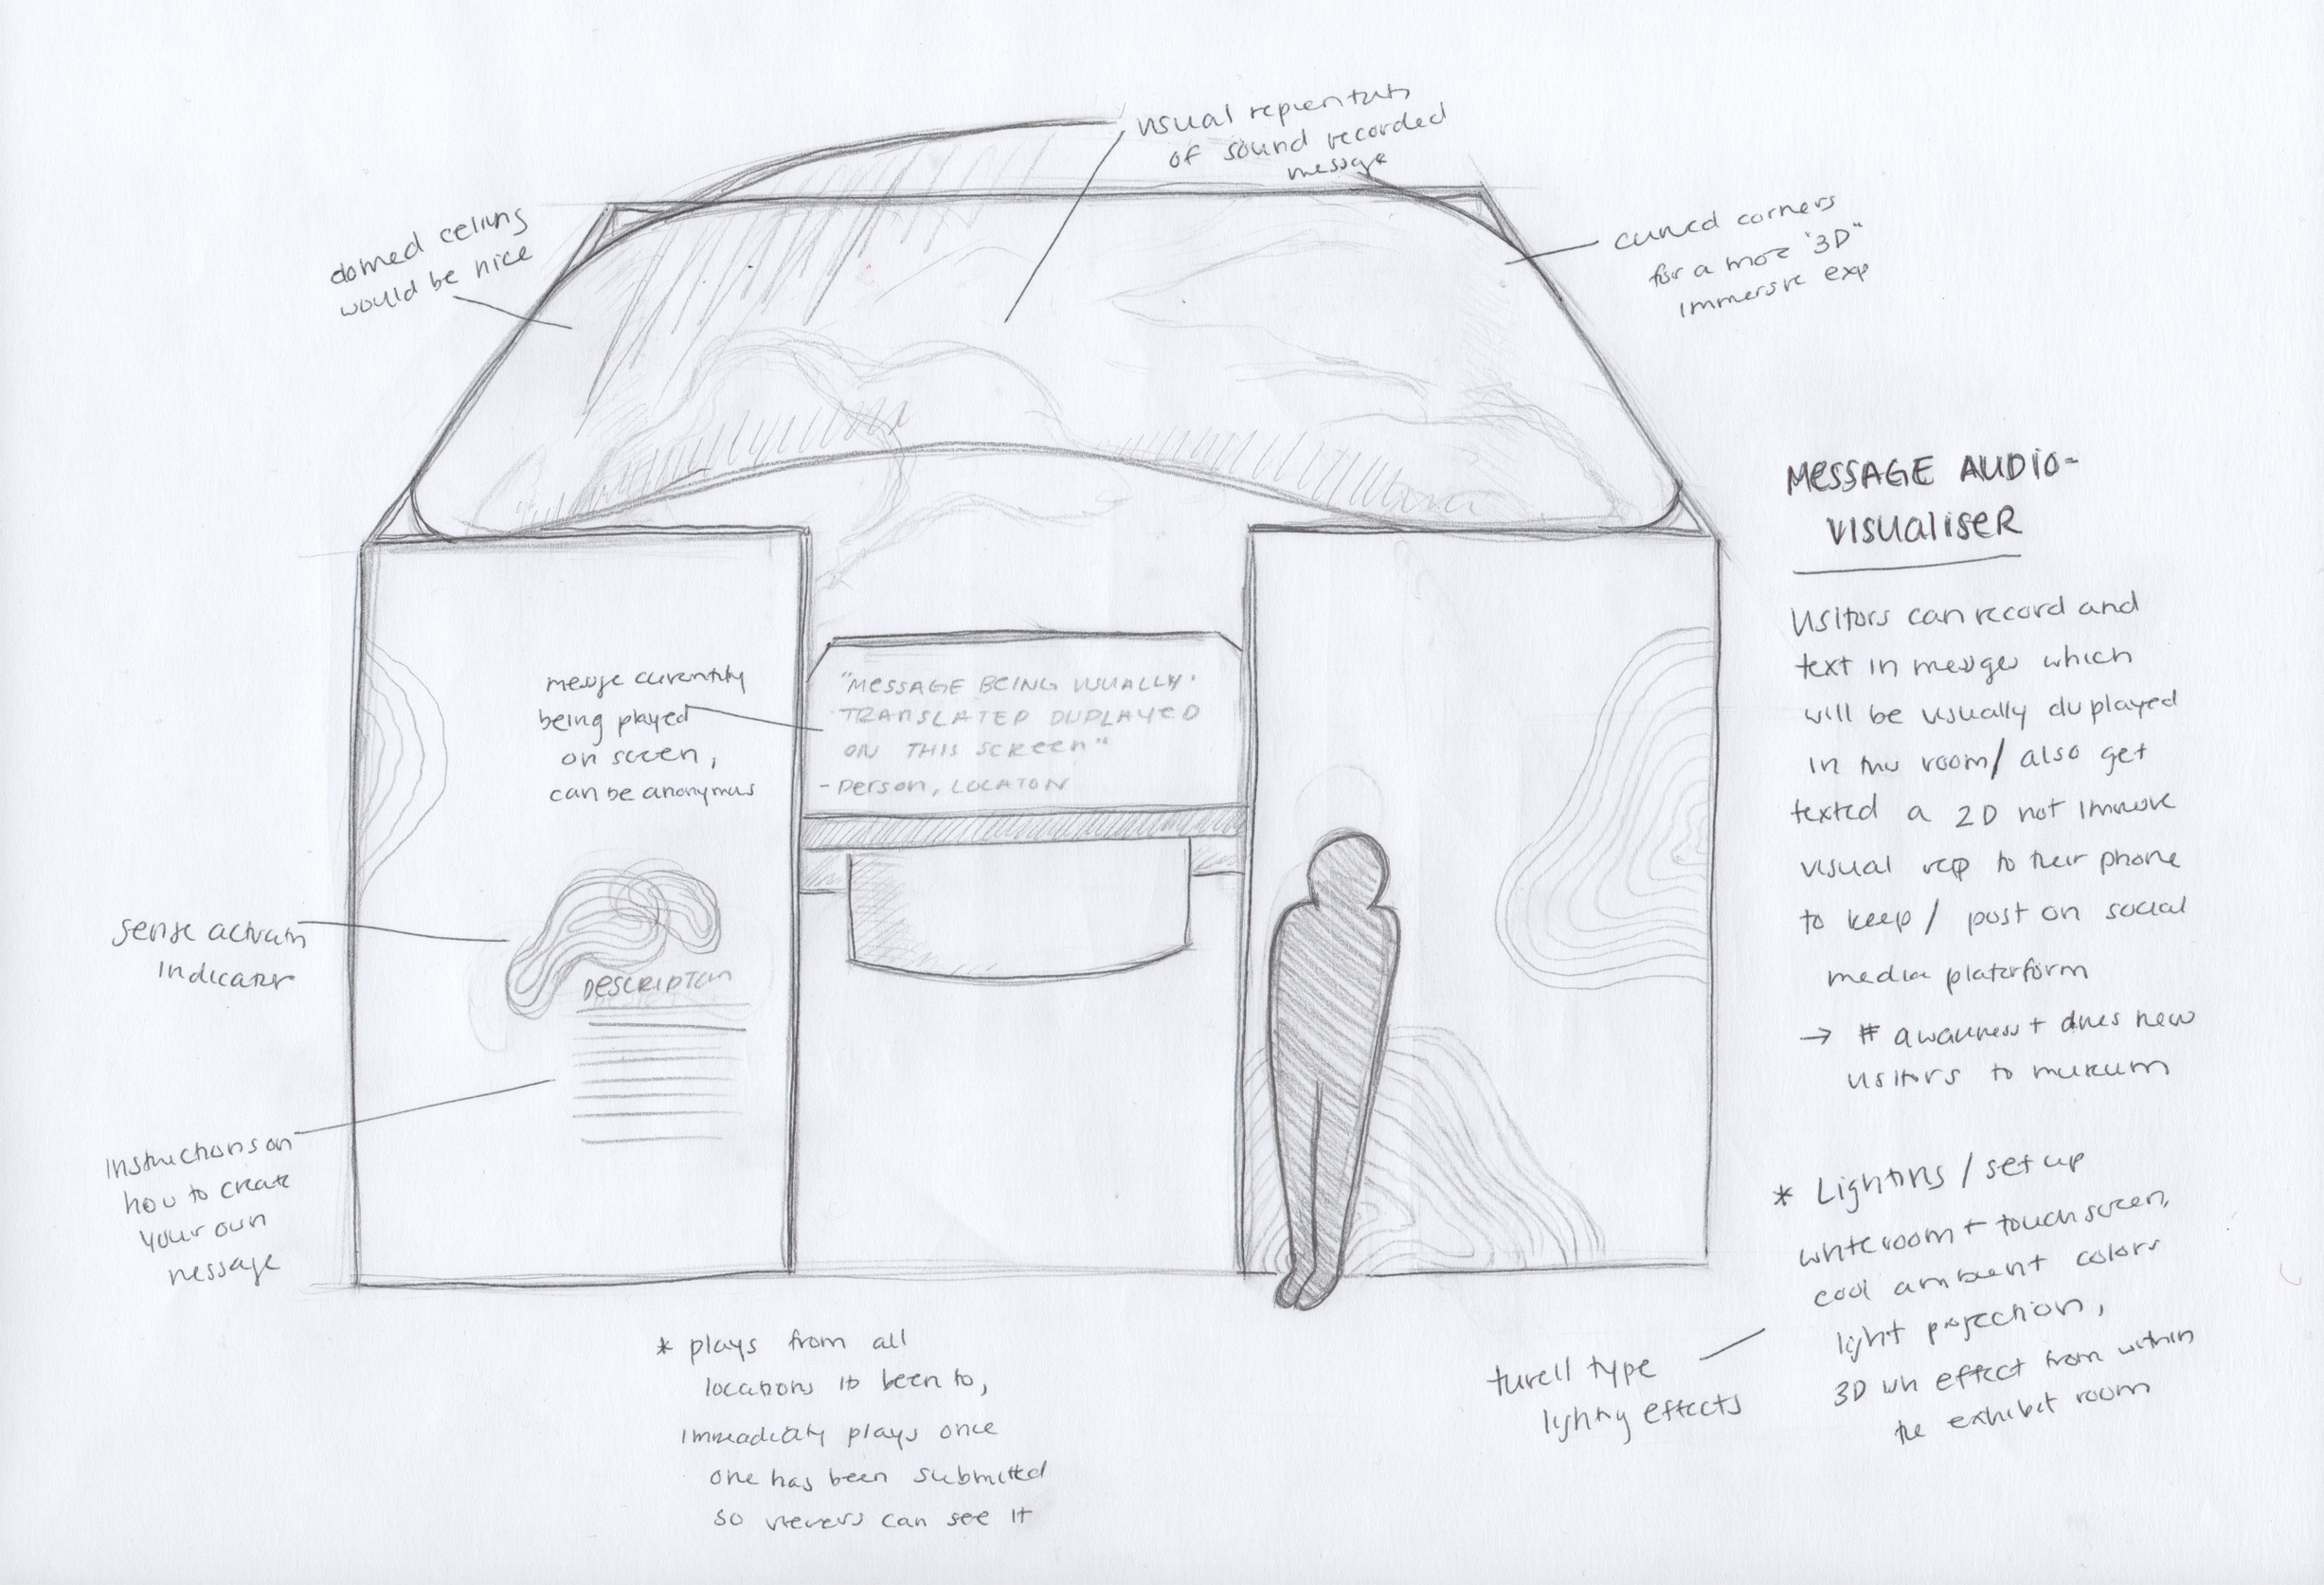 visual represntatn
of sound recorded
message
domed ceiling
would be nice
curved corners
for a more "3D"
immersive exp
MESSAGE AUDIO-
VISUALISER
Visitors can record and
text in messages which
will be visually displayed
in this room/ also get
texted a 2D not immersive
visual rep to their phone
to keep / post on social
media platerform
→ # awareness + drives new
visitors to museum
* Lighting / set up
white room + touch screen,
cool ambient colors
light projection,
3D effect from within
the exhibit room
turell type
lighting effects
message currently
being played
on screen,
can be anonymous
"MESSAGE BEING VISUALLY
TRANSLATED DISPLAYED
ON THIS SCREEN"
- Person, LOCATION
sense activatn
indicator
DESCRIPTION
instructions on
how to create
your own
message
* plays from all
locations its been to,
immediatly plays once
one has been submitted
so viewers can see it